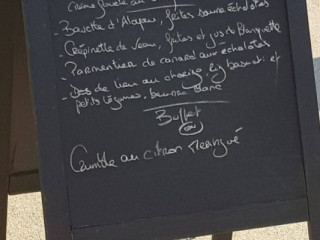 - Bavette d'Aloyau, frites sauce échalotes
- Crépinette de Veau, frites et jus de Blanquette
- Parmentier de canard aux échalotes
- Dos de lieu au chorizo, riz basmati et
petits légumes, beurre Blanc
Buffet
ou
Crumble au citron Meringué